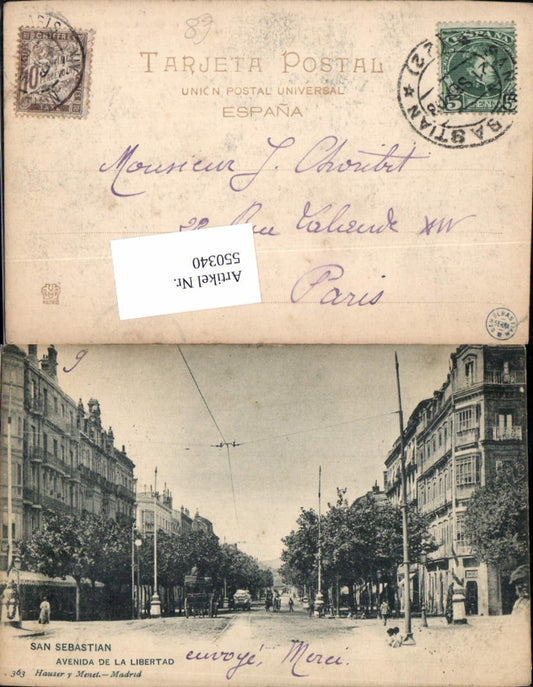 89
TARJETA POSTAL
UNIÓN POSTAL UNIVERSAL
ESPAÑA
CHIFFRE
10
ESPAÑA
5
CENT
SAN SEBASTIAN
Monsieur J. Choribit
Rue
Paris
Artikel Nr.
550340
9
SAN SEBASTIAN
AVENIDA DE LA LIBERTAD
envoyé, Merci.
363 Hauser y Menet.—Madrid